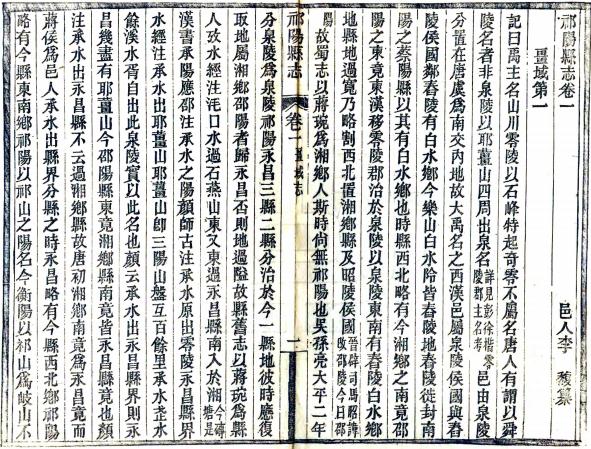 祁陽縣志卷一
邑人李馥纂
畺域第一
記曰禹主名山川零陵以石峰特起奇零不屬名唐人有謂以舜
陵名者非泉陵以耶薑山四周出泉名詳見彭徐楷零陵郡主名考邑由泉陵
分置在唐虞為南交内地故大禹名之西漢邑屬泉陵侯國與舂
陵侯國鄰舂陵有白水鄉今樂山白水阾皆舂陵地舂陵徙封南
陽之蔡陽縣以其有白水鄉也時縣西北略有今湘鄉之南竟邵
陽之東竟東漢移零陵郡治於泉陵以泉陵東南有舂陵白水鄉
地縣地過寬乃略割西北置湘鄉縣及昭陵侯國晉辟司馬昭諱改邵陵今曰邵陽
故蜀志以蔣琬為湘鄉人斯時尚無祁陽也吳孫亮大平二年
祁陽縣志
卷一 畺域志
一
分泉陵為泉陵祁陽永昌三縣二縣分治於今一縣地彼時應復
取地屬湘鄉邵陽者歸永昌否則地過隘故縣舊志以蔣琬為縣
人攷水經注湘水過石燕山東又東過永昌縣南入於湘今磚塘是
漢書承陽應邵注承水之陽顏師古注承水原出零陵永昌縣界
水經注承水出耶薑山耶薑山卽三陽山盤互百餘里承水烝水
餘溪水胥自出此泉陵實以此名也顏云承水出永昌縣界則永
昌幾盡有耶薑山今邵陽縣東竟湘鄉縣南竟皆永昌縣竟也顏
注承水出永昌縣不云過湘鄉縣故唐初湘鄉南竟為永昌竟而
蔣侯為邑人承水出縣界分縣之時永昌略有今縣西北鄉祁陽
略有今縣東南鄉祁陽以祁山之陽名今衡陽以祁山為岐山不